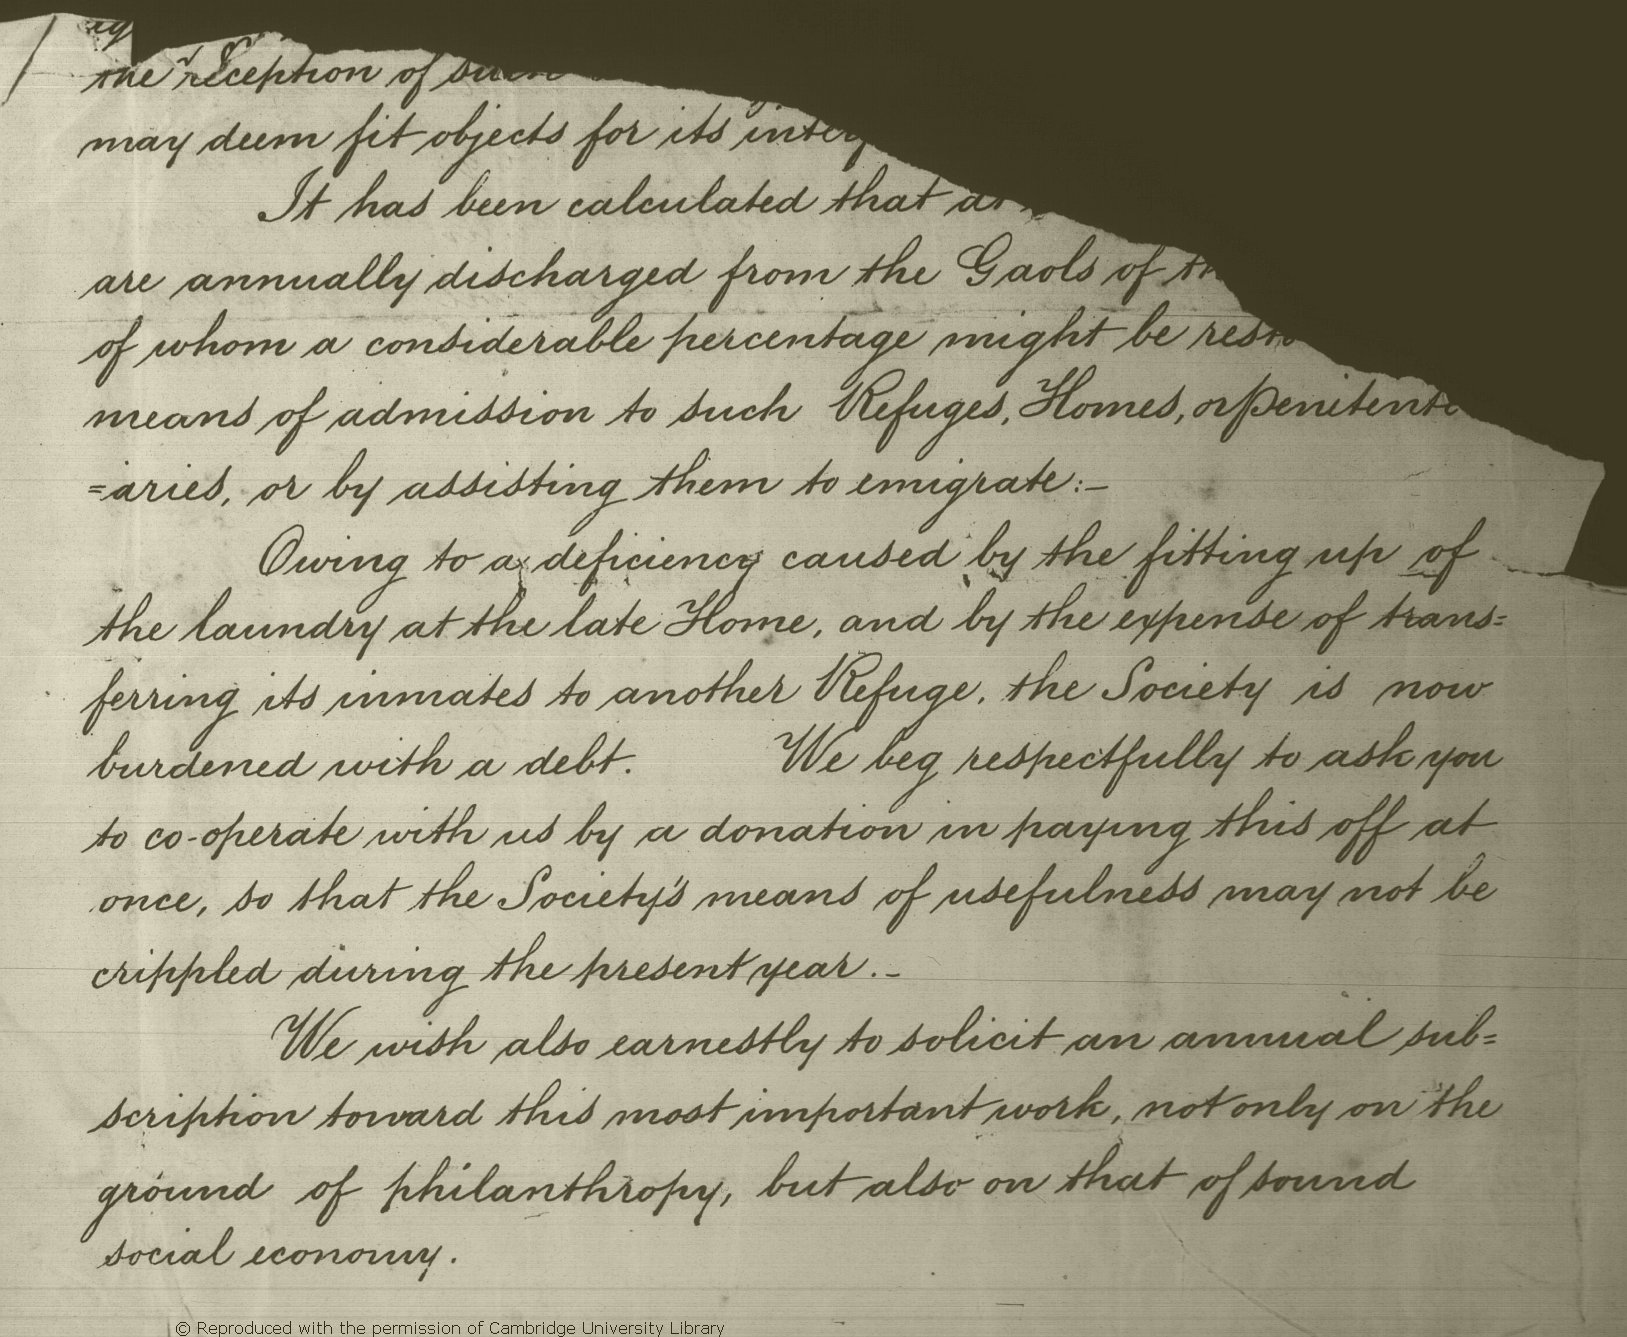 the reception of such
may deem fit objects for its
It has been calculated that at
are annually discharged from the Gaols of
of whom a considerable percentage might be
means of admission to such Refuges, Homes, or Penitenti
=aries, or by assisting them to emigrate:-
Owing to a deficiency caused by the fitting up of
the laundry at the late Home, and by the expense of trans=
ferring its inmates to another Refuge, the Society is now
burdened with a debt. We beg respectfully to ask you
to co-operate with us by a donation in paying this off at
once, so that the Society's means of usefulness may not be
crippled during the present year.-
We wish also earnestly to solicit an annual sub=
scription toward this most important work, not only on the
ground of philanthropy, but also on that of sound
social economy.
© Reproduced with the permission of Cambridge University Library